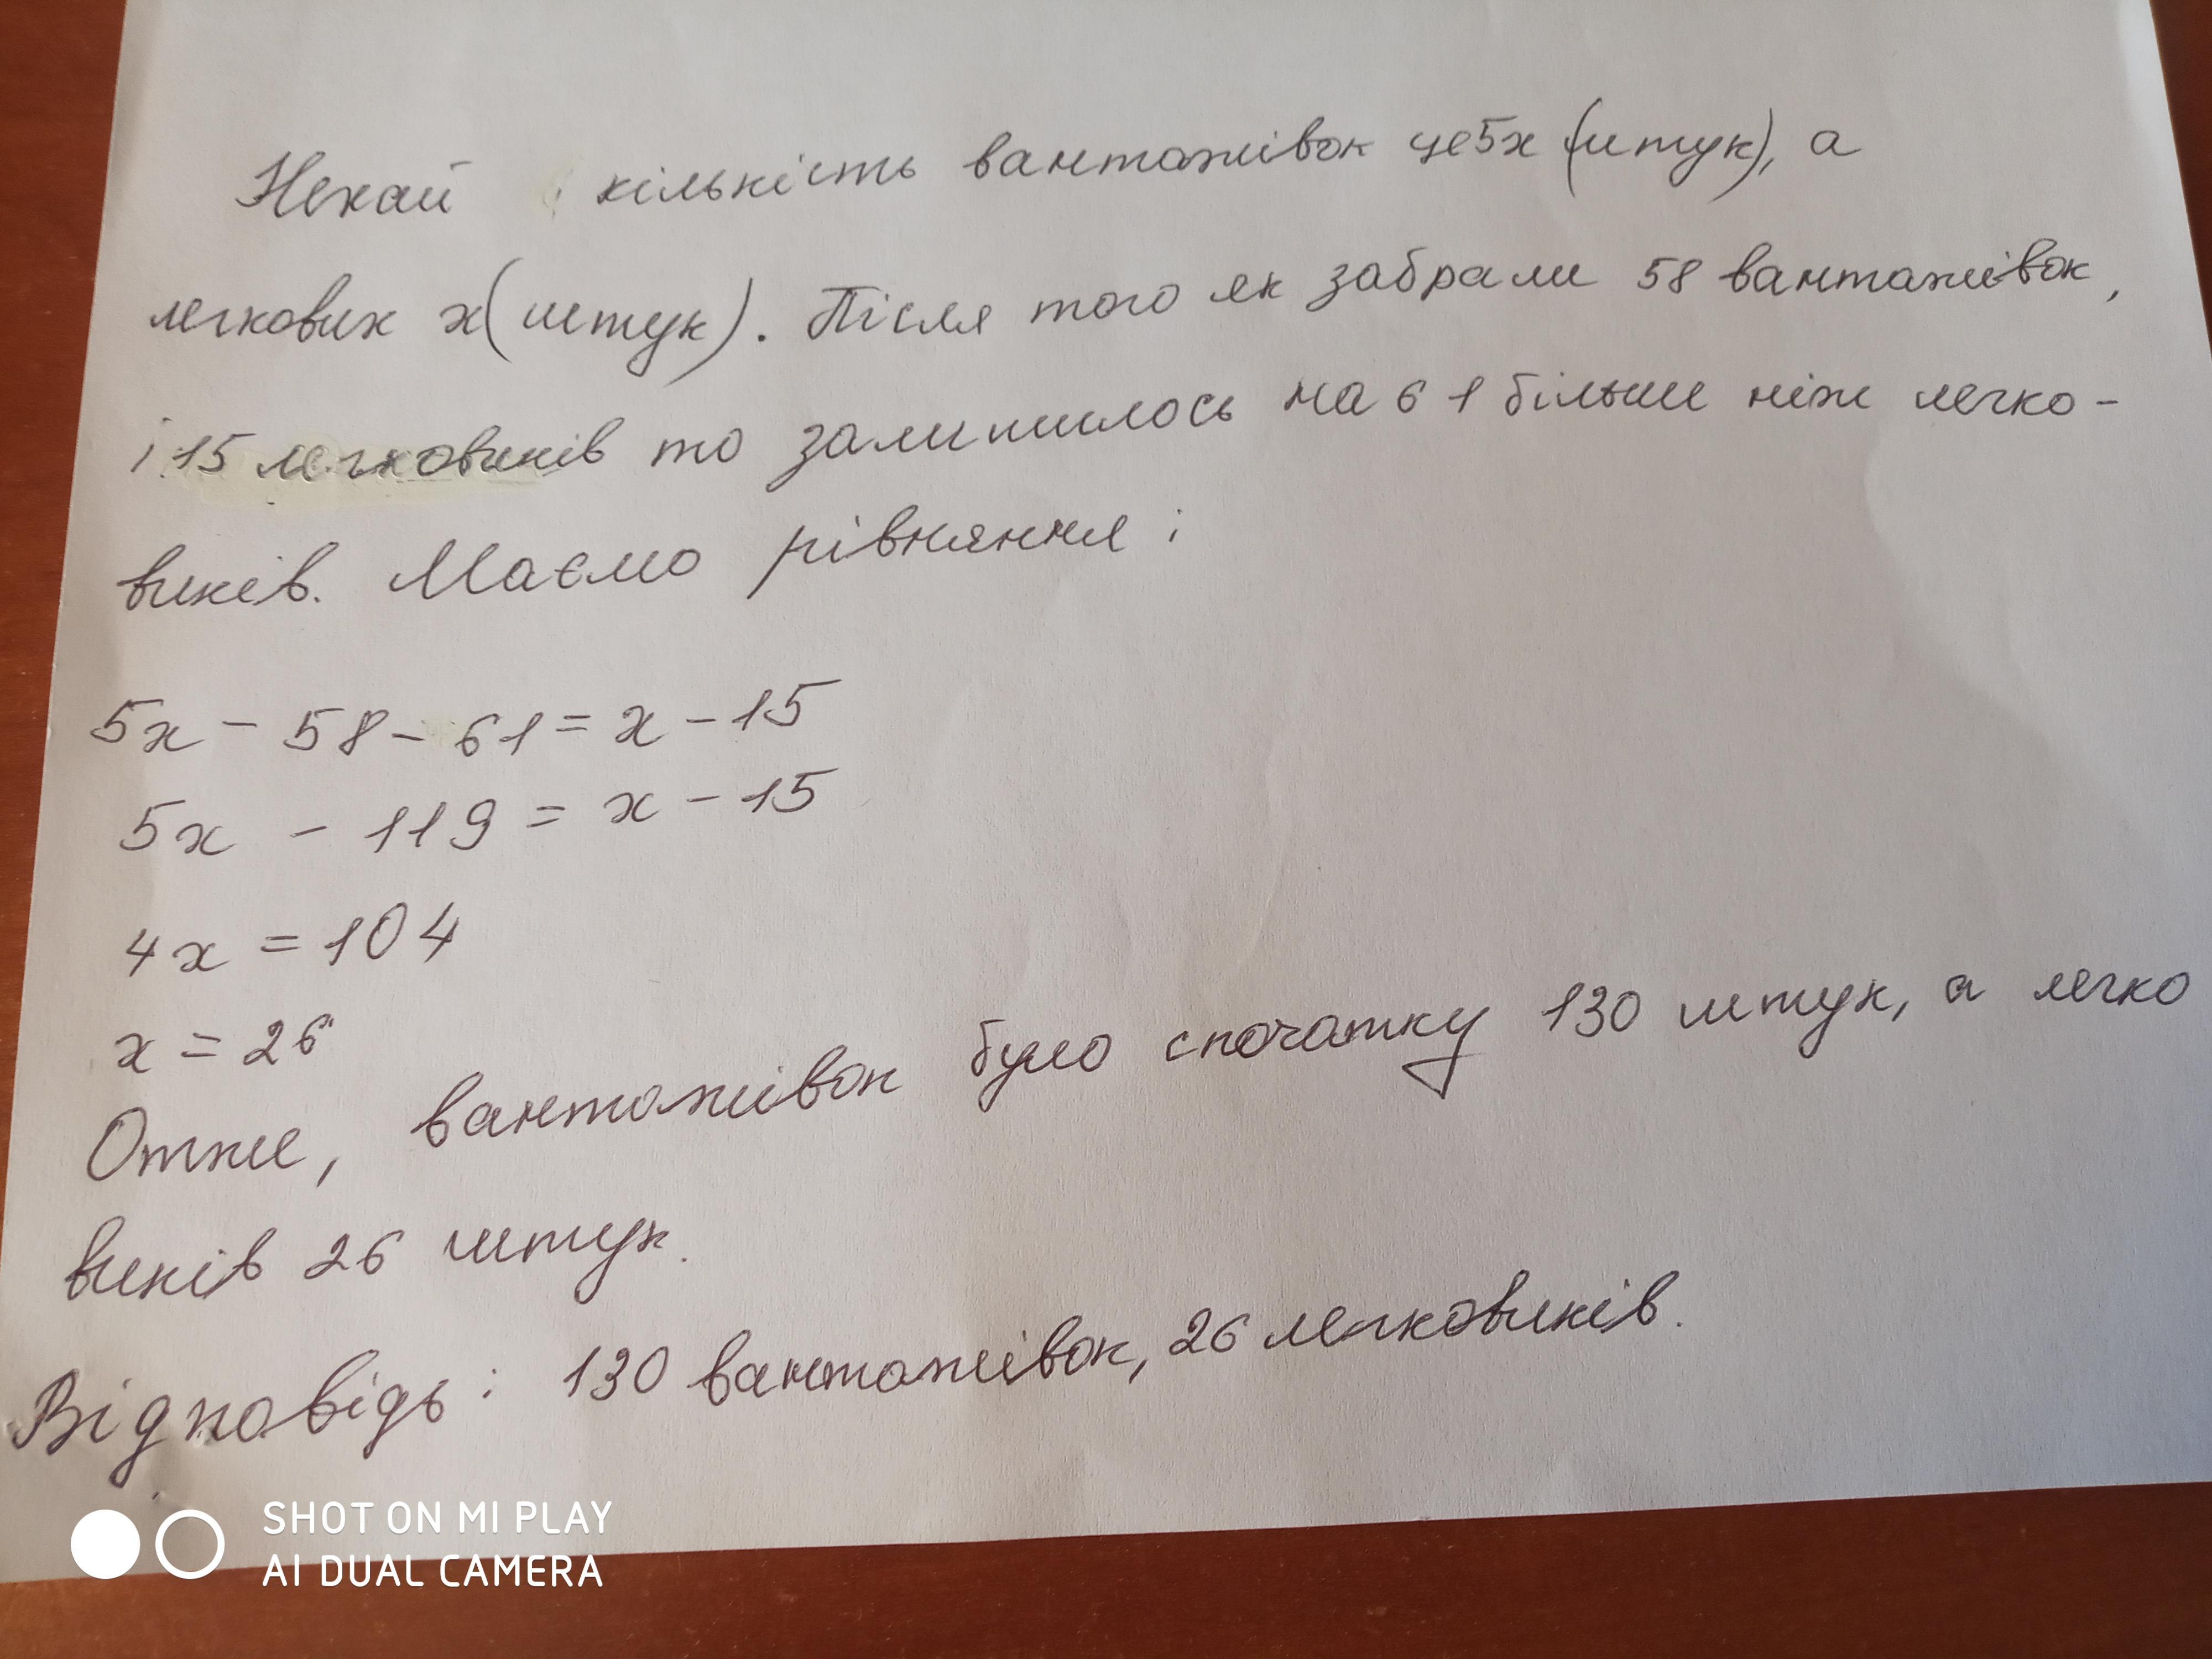 Нехай кількість вантажівок це 5x (штук), а
легкових x (штук). Після того як забрали 58 вантажівок,
і 15 легковиків то залишилось на 61 більше ніж легко-
виків. Маємо рівняння:
5x - 58 - 61 = x - 15
5x - 119 = x - 15
4x = 104
x = 26
Отже, вантажівок було спочатку 130 штук, а легко
виків 26 штук.
Відповідь: 130 вантажівок, 26 легковиків.
SHOT ON MI PLAY
AI DUAL CAMERA